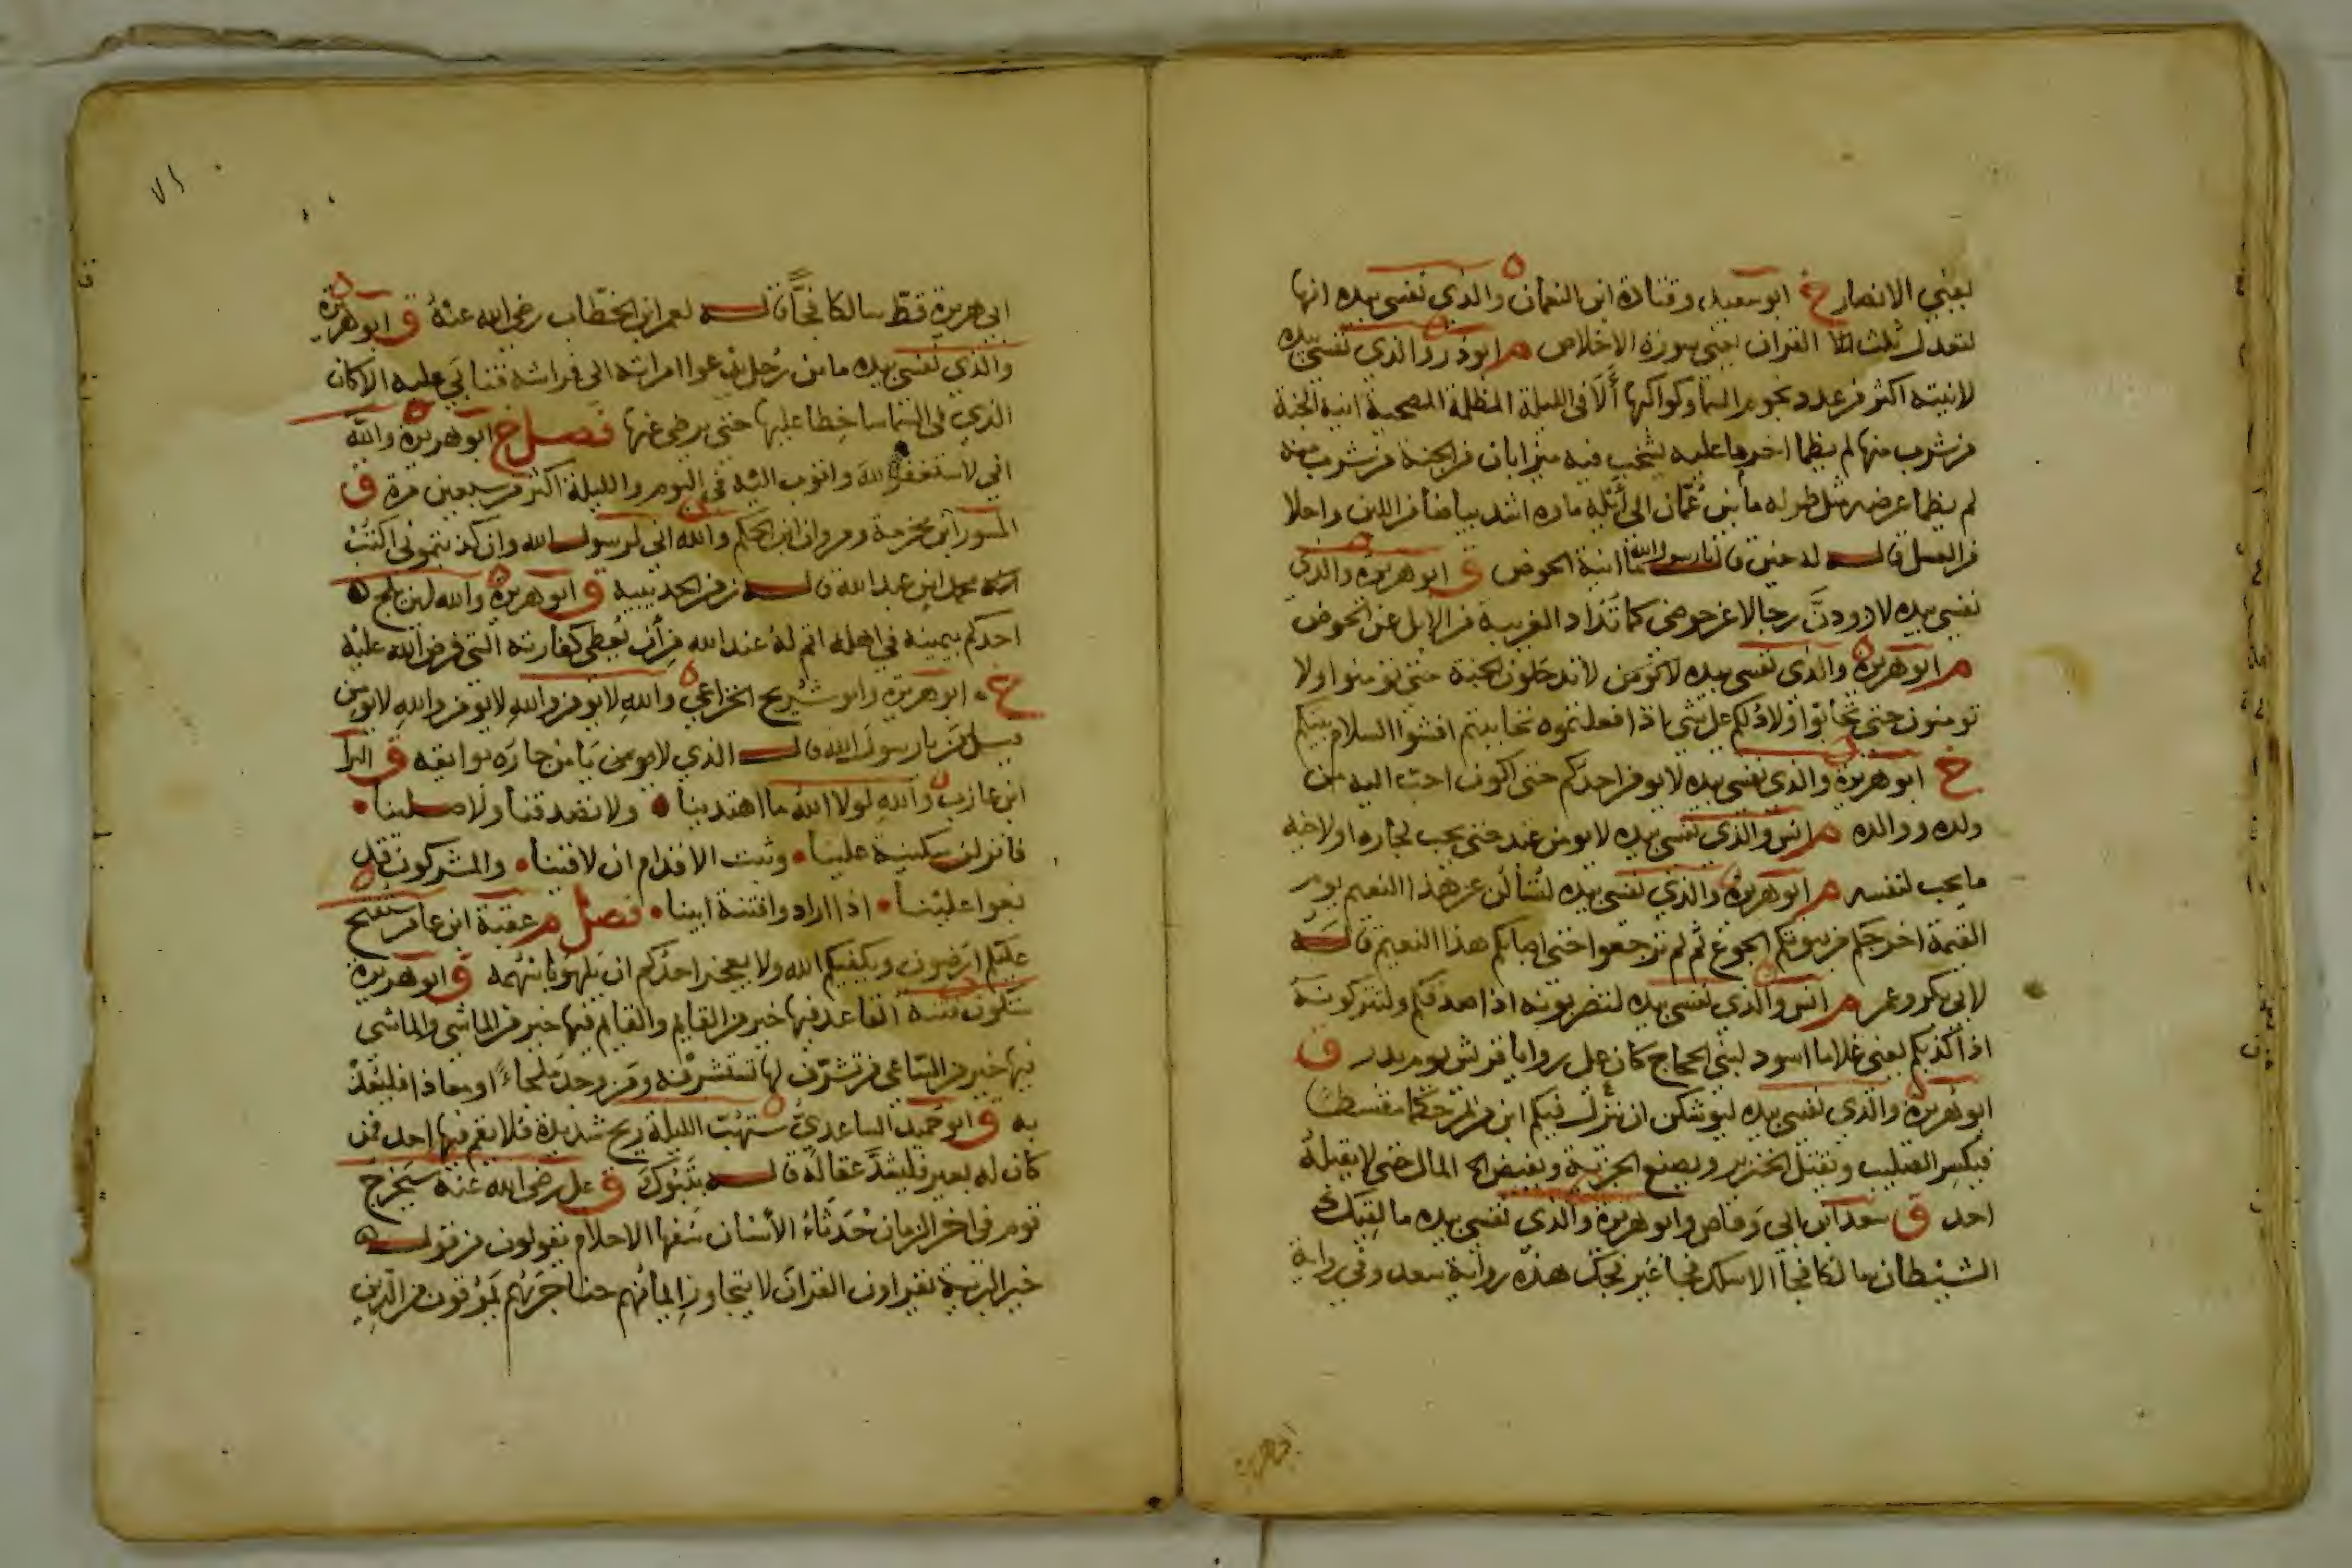 يعني الانصار خ ابو سعيد وقتادة ابن النعمان والذي نفسي بيده انها
لتعدل ثلث القران يعني سورة الاخلاص م ابو ذر والذي نفسي بيده
لانيته اكثر من عدد نجوم السما وكواكبها ألا في الليلة المظلمة المصحية انية الجنة
من شرب منها لم يظما اخر ما عليه يشخب فيه ميزابان من الجنة من شرب منه
لم يظما عرضه مثل طوله ما بين عُمّان الى أيلة ماوه اشد بياضا من اللبن واحلا
من العسل قاله له حين قال يا رسول الله ما انية الحوض ق ابو هريرة والذي
نفسي بيده لاذودنّ رجالا عن حوضي كما تذاد الغريبة من الابل عن الحوض
م ابو هريرة والذي نفسي بيده لا تدخلون الجنة حتى تومنوا ولا
تومنون حتى تحابوا اولا ادلكم على شي اذا فعلتموه تحاببتم افشوا السلام بينكم
خ ابو هريرة والذي نفسي بيده لا يومن احدكم حتى اكون احب اليه من
ولده ووالده م انس والذي نفسي بيده لا يومن عبد حتى يحب لجاره او لاخيه
ما يحب لنفسه م ابو هريرة والذي نفسي بيده لتسألن عن هذا النعيم يوم
القيمة اخرجكم من بيوتكم الجوع ثم لم ترجعوا حتى اصابكم هذا النعيم قاله
لابي بكر وعمر م انس والذي نفسي بيده لتضربونه اذا صدقكم ولتتركونه
اذا كذبكم يعني غلاما اسود لبني الحجاج كان على روايا قريش يوم بدر ق
ابو هريرة والذي نفسي بيده ليوشكن ان ينزل فيكم ابن مريم حكما مقسطا
فيكسر الصليب ويقتل الخنزير ويضع الجزية ويفيض المال حتى لا يقبله
احد ق سعد ابن ابي وقاص وابو هريرة والذي نفسي بيده ما لقيك
الشيطان سالكا فجا الا سلك فجا غير فجك هذه رواية سعد وفي رواية
ابي هريرة
ابي هريرة قطّ سالكا فجًّا قاله لعمر ابن الخطّاب رضي الله عنهُ ق ابو هريرة
والذي نفسي بيده ما من رجل يدعوا امراته الى فراشه فتابى عليه الا كان
الذي في السّما ساخطا عليها حتى يرضى عنها فصل خ ابو هريرة والله
اني لاستغفر الله واتوب اليه في اليوم والليلة اكثر من سبعين مرة ق
المسور ابن مخرمة ومروان ابن الحكم والله اني لرسول الله وان كذبتموني اكتب
محمد ابن عبد الله قاله زمن الحديبية ق ابو هريرة والله لان يلج
احدكم بيمينه في اهله اثم لهُ عند الله من أن يُعطي كفارته التي فرض الله عليه
خ ابو هريرة وابو شُريح الخزاعي والله لا يومن والله لا يومن والله لا يومن
قيل من يا رسول الله قال الذي لا يومن يامن جارَه بوايقه ق البرا
ابن عازب والله لولا الله ما اهتدينا • ولا تصدقنا ولا صلينا •
فانزلن سكينة علينا • وثبت الاقدام ان لاقينا • والمشركون قد
بغوا علينا • اذا ارادوا فتنة ابينا • فصل م عقبة ابن عامر ستفتح
عليكم ارَضون ويكفيكم الله ولا يعجز احدُكم ان يلهوَ باسهمه ق ابو هريرة
ستكون فتنة القاعد فيها خير من القايم والقايم فيها خير من الماشي والماشي
فيها خير من السّاعي من تشرّف لها تستشرفه ومن وجد ملجاءً او معاذا فليعُذْ
به ق ابو حُميد الساعديّ ستهُبّ الليلةَ ريح شديدة فلا يقم فيها احد فمن
كان له بعير فليشدّ عقاله قاله بتَبُوك ق علي رضي الله عنه سيخرج
قوم في اخر الزمان حُدَثاءُ الأسنان سُفها الاحلام يقولون من قول
خير البريّة يقراون القرانَ لا يتجاوز ايمانُهم حناجرَهُم يَمْرُقون من الدّين